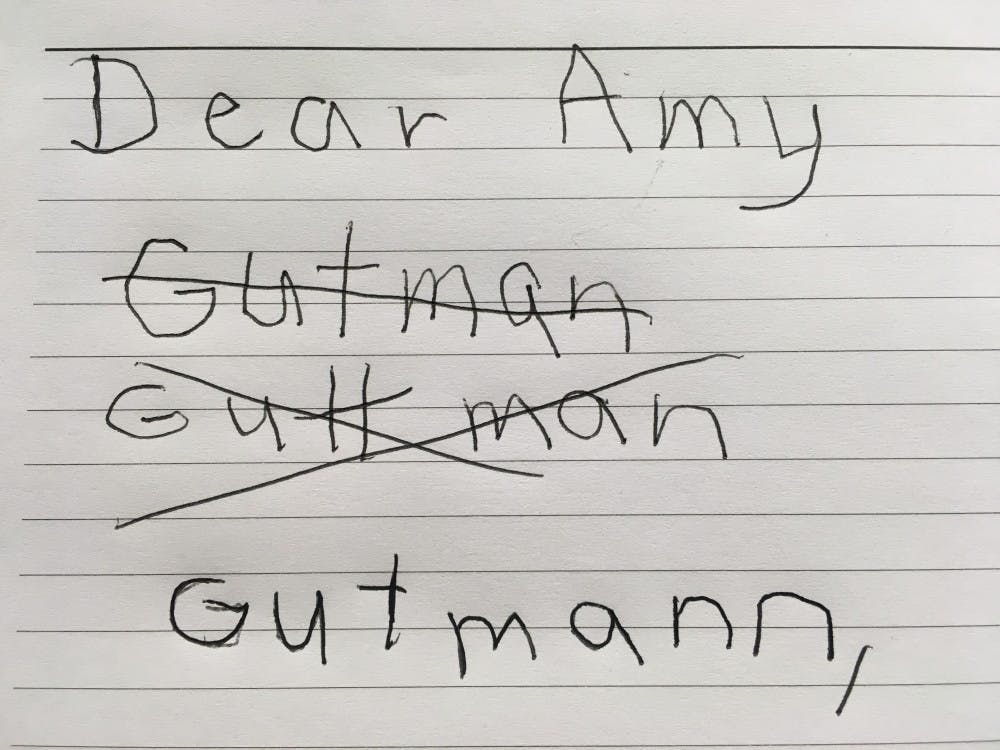 Dear Amy
Gutman
Guttman
Gutmann,